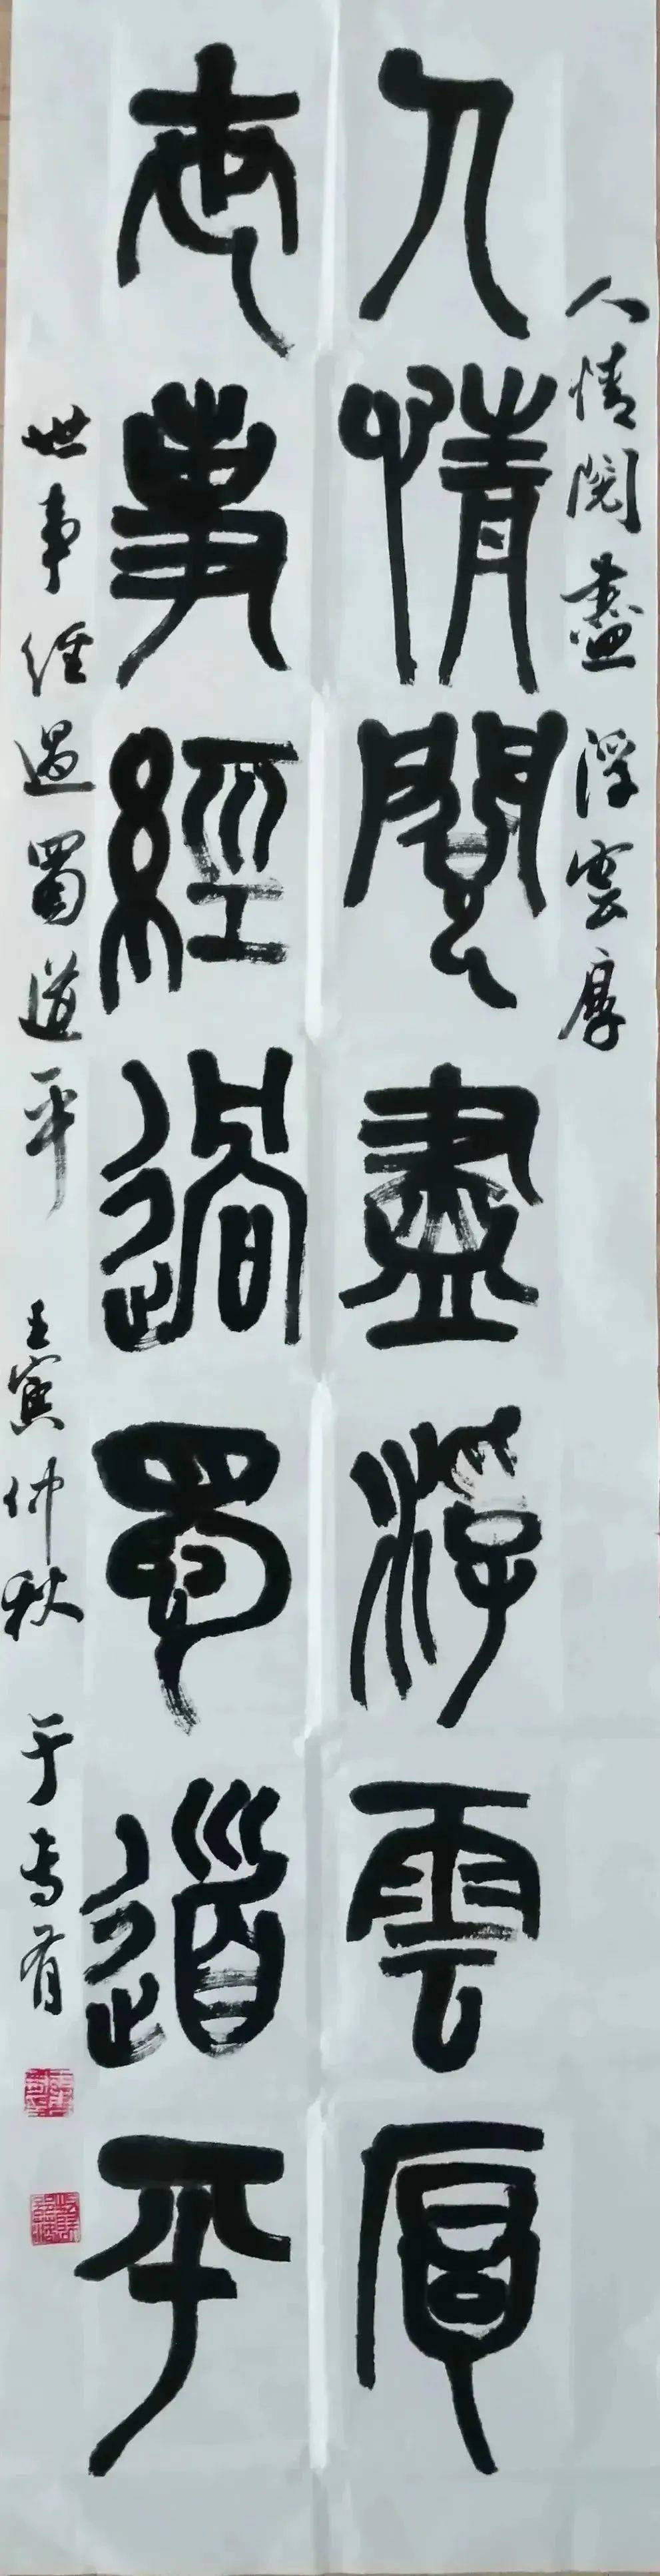 人情閱盡浮雲厚
人情閱盡浮雲厚
世事經過蜀道平
世事經過蜀道平 壬寅仲秋 于